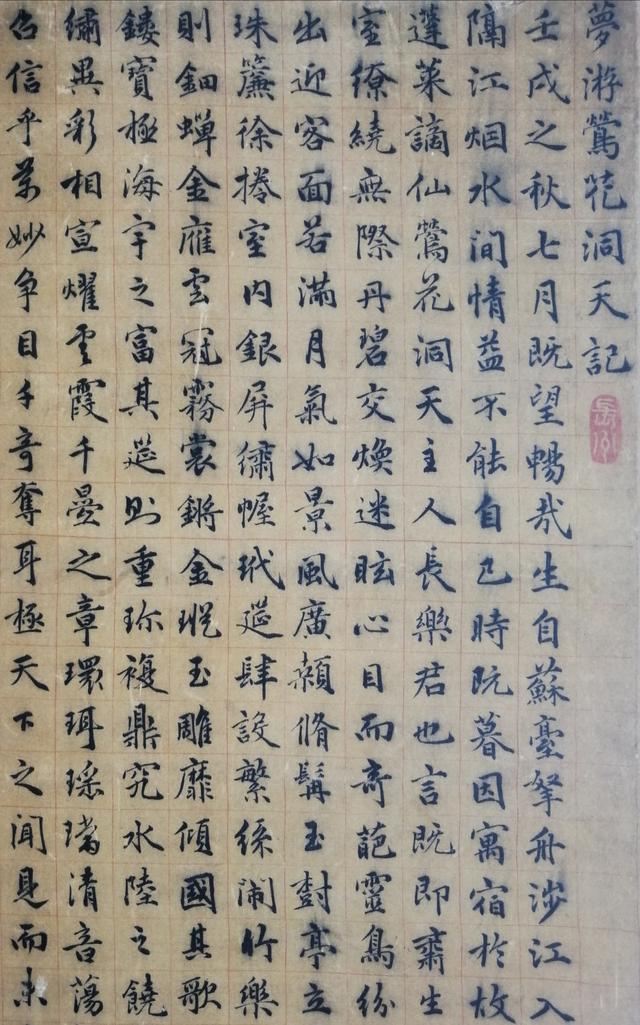 夢游鶯花洞天記
壬戌之秋七月既望暢哉生自蘇臺拏舟涉江入
隔江烟水間情益不能自已時阮暮因寓宿於故
蓬萊謫仙鶯花洞天主人長樂君也言既即齋生
室繚繞無際丹碧交煥迷眩心目而奇葩靈鳥紛
出迎客面若滿月氣如景風廣顙脩髯玉尌亭立
珠簾徐捲室內銀屏繡幄玳筵肆設繁絲鬧竹樂
則鈿蟬金雁雲冠霧裳鏘金瑽玉雕靡傾國其歌
鏤寶極海宇之富其筵則重珎複鼎究水陸之饒
繡異彩相宣燿雲霞千疊之章環珥瑶璫清音蕩
召信乎萃妙争目千奇奪耳極天下之聞見而未